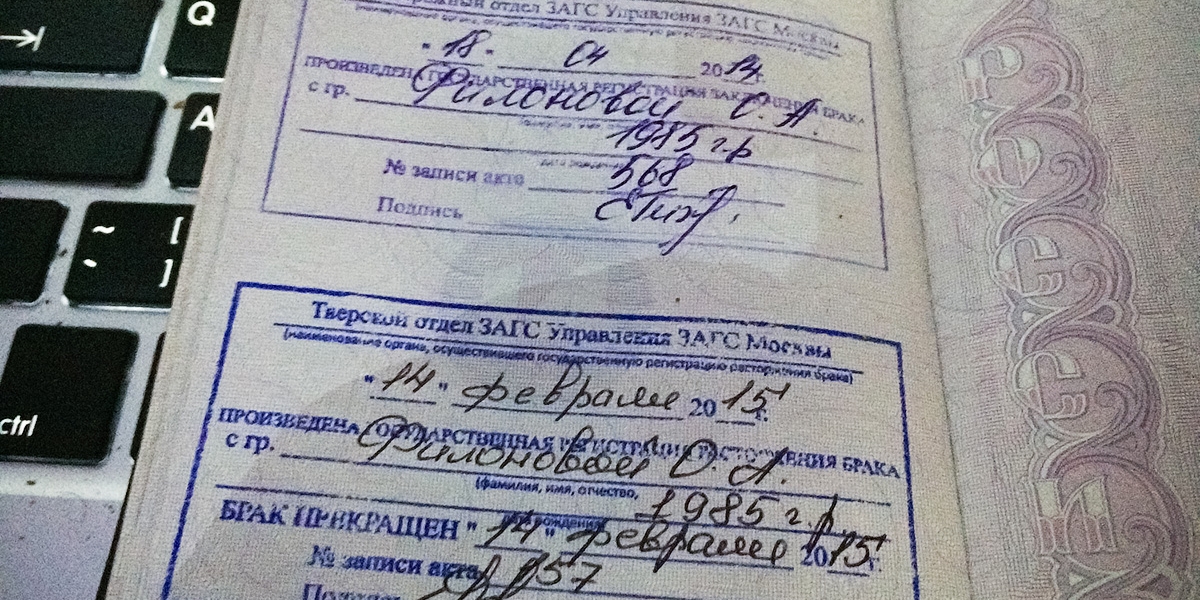 Q
отдел ЗАГС Управления ЗАГС Москвы
" 18 " 04 2014 г.
ПРОИЗВЕДЕНА ГОСУДАРСТВЕННАЯ РЕГИСТРАЦИЯ ЗАКЛЮЧЕНИЯ БРАКА
с гр. Филоновой О. А.
A
1985 г.р
№ записи акта 568
Подпись
~ [
` ]
Тверской отдел ЗАГС Управления ЗАГС Москвы
(наименование органа, осуществившего государственную регистрацию расторжения брака)
" 14 " февраля 2015 г.
ПРОИЗВЕДЕНА ГОСУДАРСТВЕННАЯ РЕГИСТРАЦИЯ РАСТОРЖЕНИЯ БРАКА
с гр. Филоновой О. А.
ctrl
(фамилия, имя, отчество,
1985 г.р.
БРАК ПРЕКРАЩЕН " 14 " февраля 2015 г.
№ записи акта